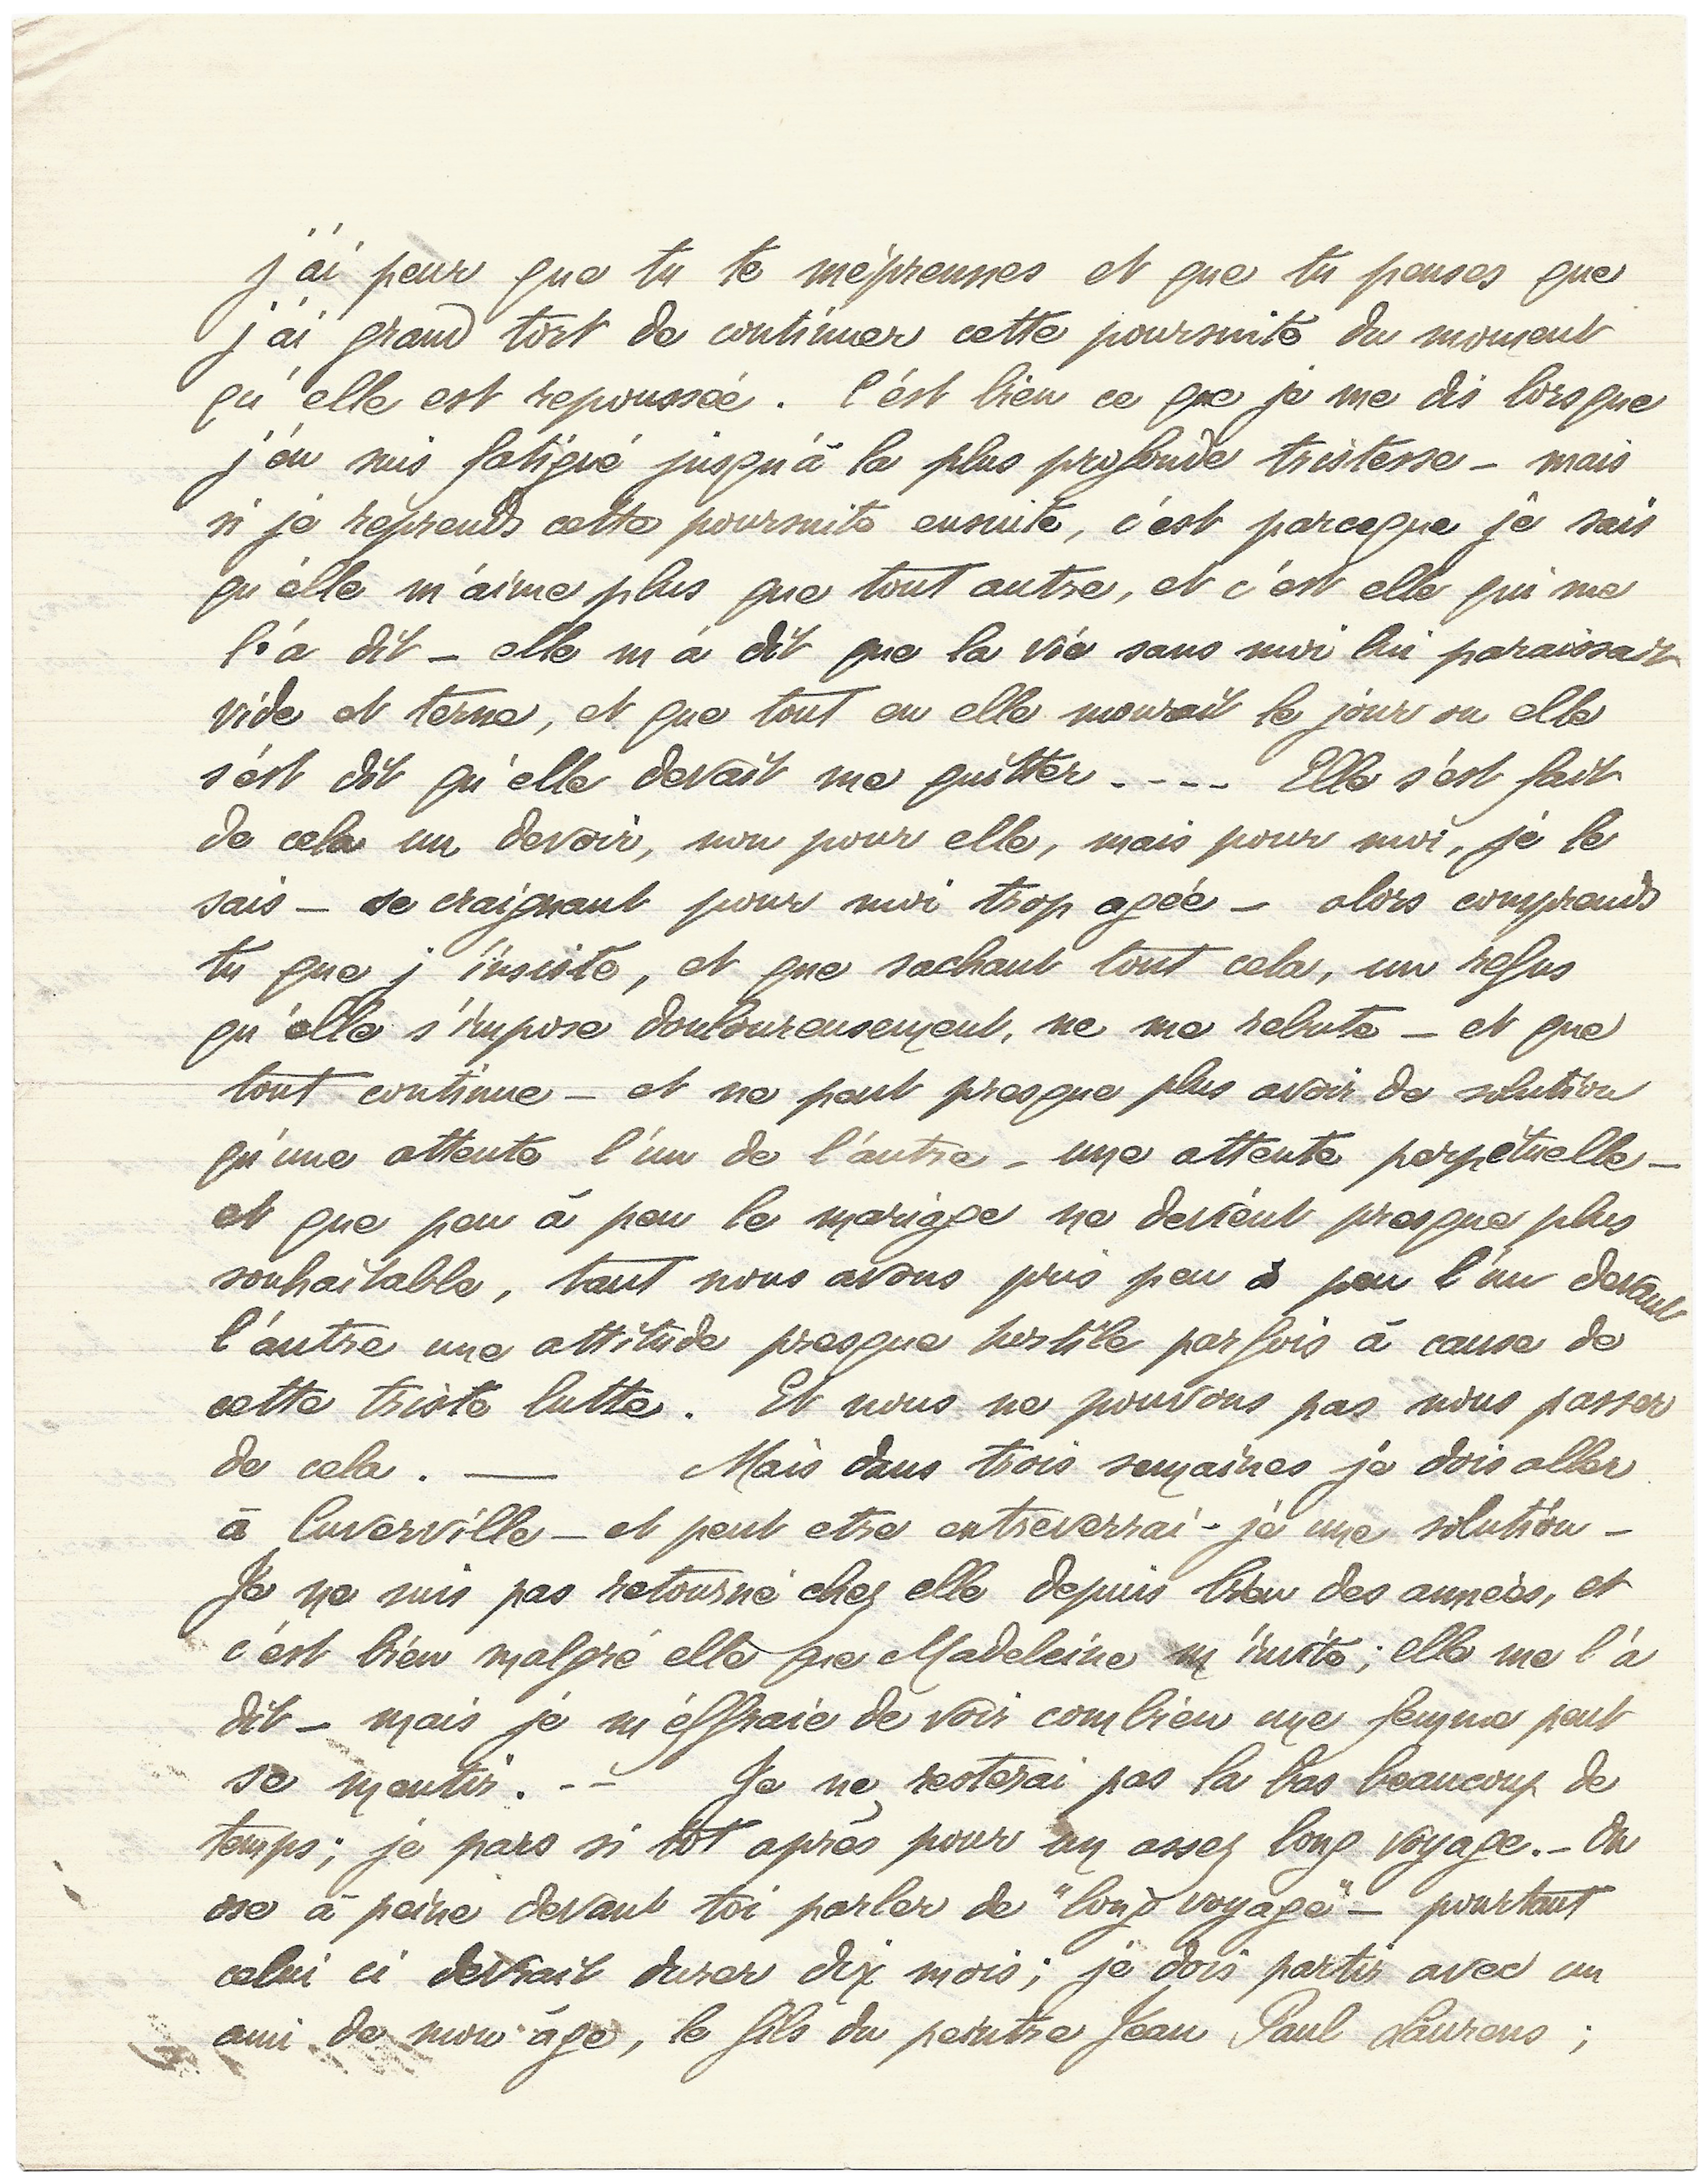 j'ai peur que tu te méprennes et que tu penses que
j'ai grand tort de continuer cette poursuite du moment
qu'elle est repoussée. C'est bien ce que je me dis lorsque
j'en suis fatigué jusqu'à la plus profonde tristesse — mais
si je reprends cette poursuite ensuite, c'est parceque je sais
qu'elle m'aime plus que tout autre, et c'est elle qui me
l'a dit — elle m'a dit que la vie sans moi lui paraissait
vide et terne, et que tout en elle mourait le jour ou elle
s'est dit qu'elle devait me quitter . - - - Elle s'est fait
de cela un devoir, non pour elle, mais pour moi, je le
sais — se craignant pour moi trop agée — alors comprends
tu que j'insiste, et que sachant tout cela, un refus
qu'elle s'impose douloureusement, ne me rebute — et que
tout continue — et ne peut presque plus avoir de solution
qu'une attente l'un de l'autre — une attente perpétuelle —
et que peu à peu le mariage ne devient presque plus
souhaitable, tant nous avons pris peu à peu l'un devant
l'autre une attitude presque hostile parfois à cause de
cette triste lutte. Et nous ne pouvons pas nous passer
de cela. — Mais dans trois semaines je dois aller
à Cuverville — et peut etre entreverrai-je une solution —
Je ne suis pas retourné chez elle depuis bien des années, et
c'est bien malgré elle que Madeleine m'invite; elle me l'a
dit — mais je m'effraie de voir combien une femme peut
se mentir. - - Je ne resterai pas la bas beaucoup de
temps; je pars si tôt après pour un assez long voyage. — On
ose à peine devant toi parler de "long voyage" — pourtant
celui ci devrait durer dix mois; je dois partir avec un
ami de mon âge, le fils du peintre Jean Paul Laurens ;